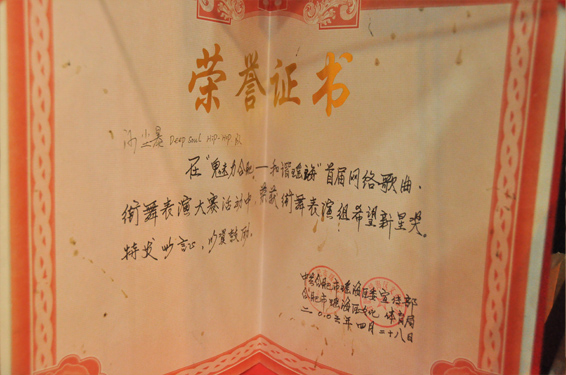 荣誉证书
Deep Soul HIP-HOP 队
在"魅力合肥—和谐瑶海"首届网络歌曲、
街舞表演大赛活动中,荣获街舞表演组希望新星奖。
特发此证,以资鼓励。
中共合肥市瑶海区委宣传部
合肥市瑶海区文化体育局
二00六年四月二十八日